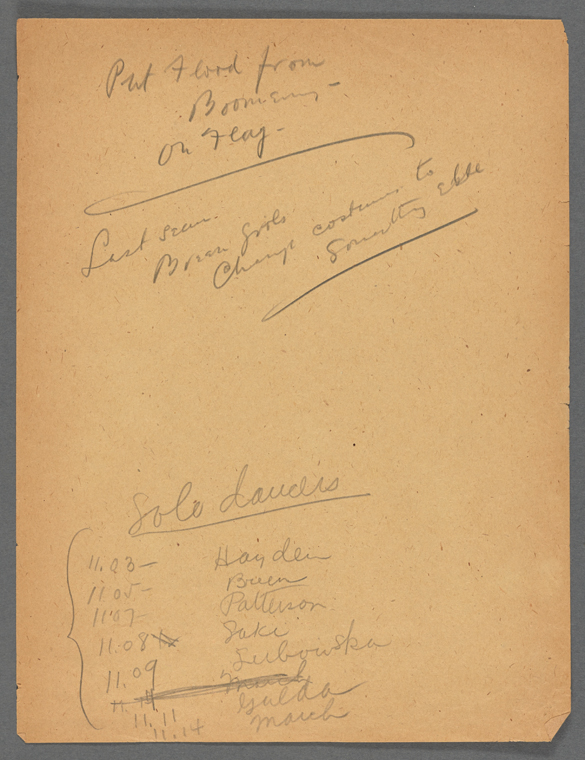 Put Flood from
Boomerang -
On Flag -
Last scene.
girls
Change costumes to
Something else
Solo dancers
11.03 - Hayden
11.05 -
11.07 - Patterson
11.08 Saki
11.09 Lubowska
11.11 Gulda
11.14 March